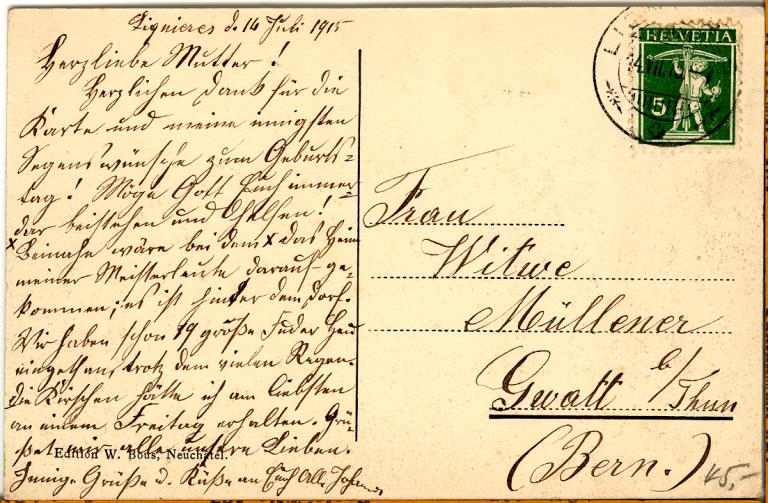 Lignieres d. 14 Juli 1915
Herzliebe Mutter!
Herzlichen Dank für die
Karte und meine innigsten
Segenswünsche zum Geburts-
tag! Möge Gott Euch immer-
dar beistehen und helfen!
Beinahe wäre bei dem x das Heim
meiner Meisterleute darauf ge-
kommen; es ist hinter dem Dorf.
Wir haben schon 19 große Fuder Heu
eingethan trotz dem vielen Regen.
Die Kirschen hätte ich am liebsten
an einem Freitag erhalten. Grü-
ßet mir alle unsere Lieben.
Edition W. Bous, Neuchâtel.
Innige Grüße & Küße an Euch Alle
HELVETIA
5
Frau
Witwe
Müllener
Gwatt b/Thun
(Bern.)
45,-